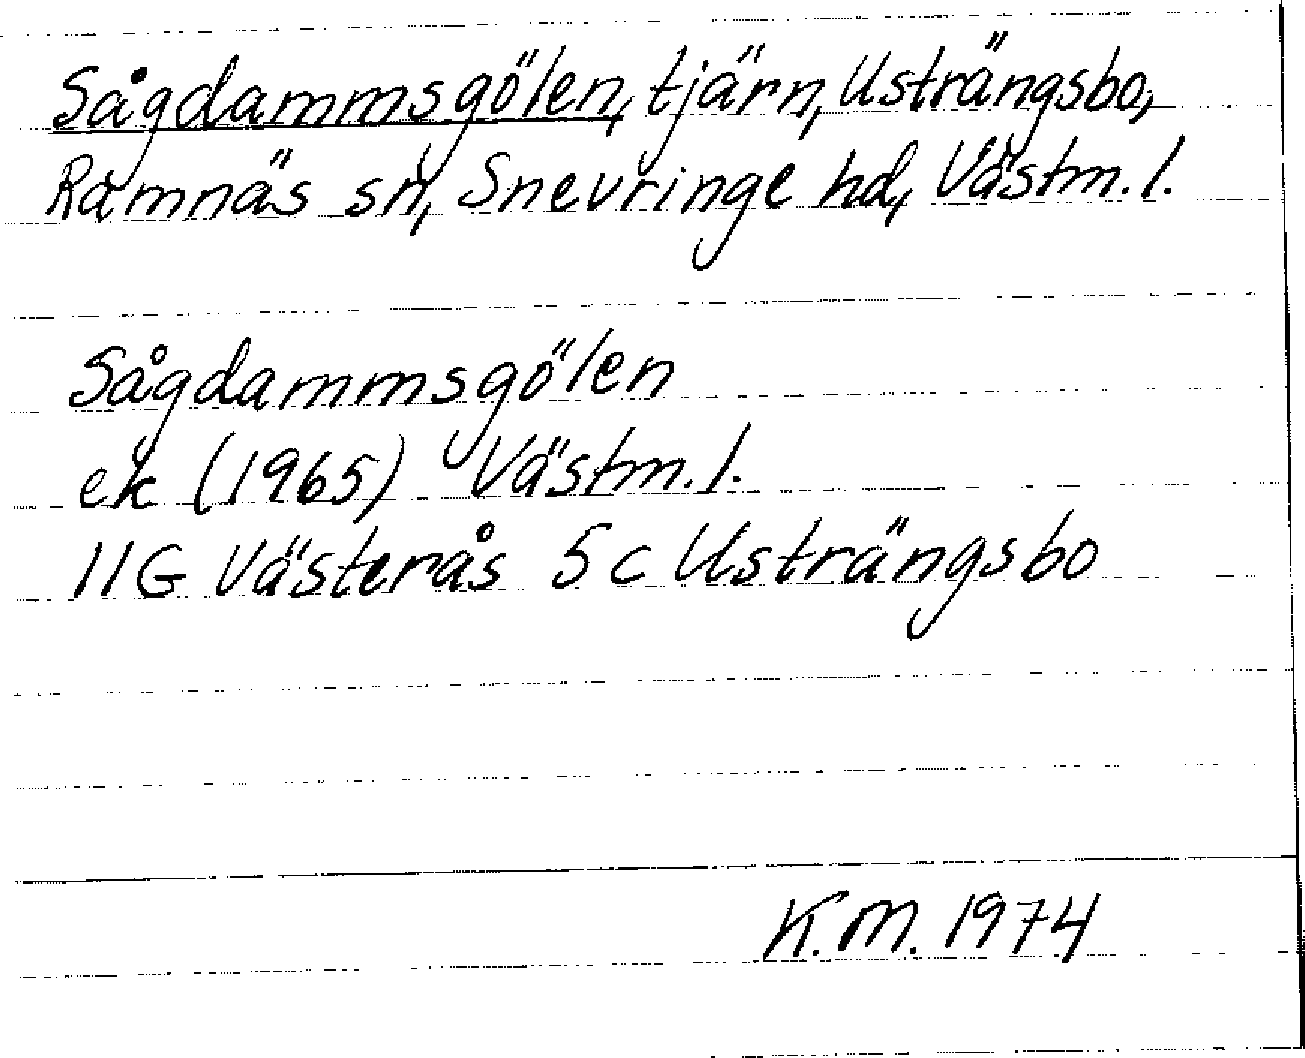 Sågdammsgölen, tjärn, Usträngsbo,
Ramnäs sn, Snevringe hd, Västm. l.
Sågdammsgölen
ek (1965) Västm. l.
11G Västerås 5c Usträngsbo
K.M. 1974